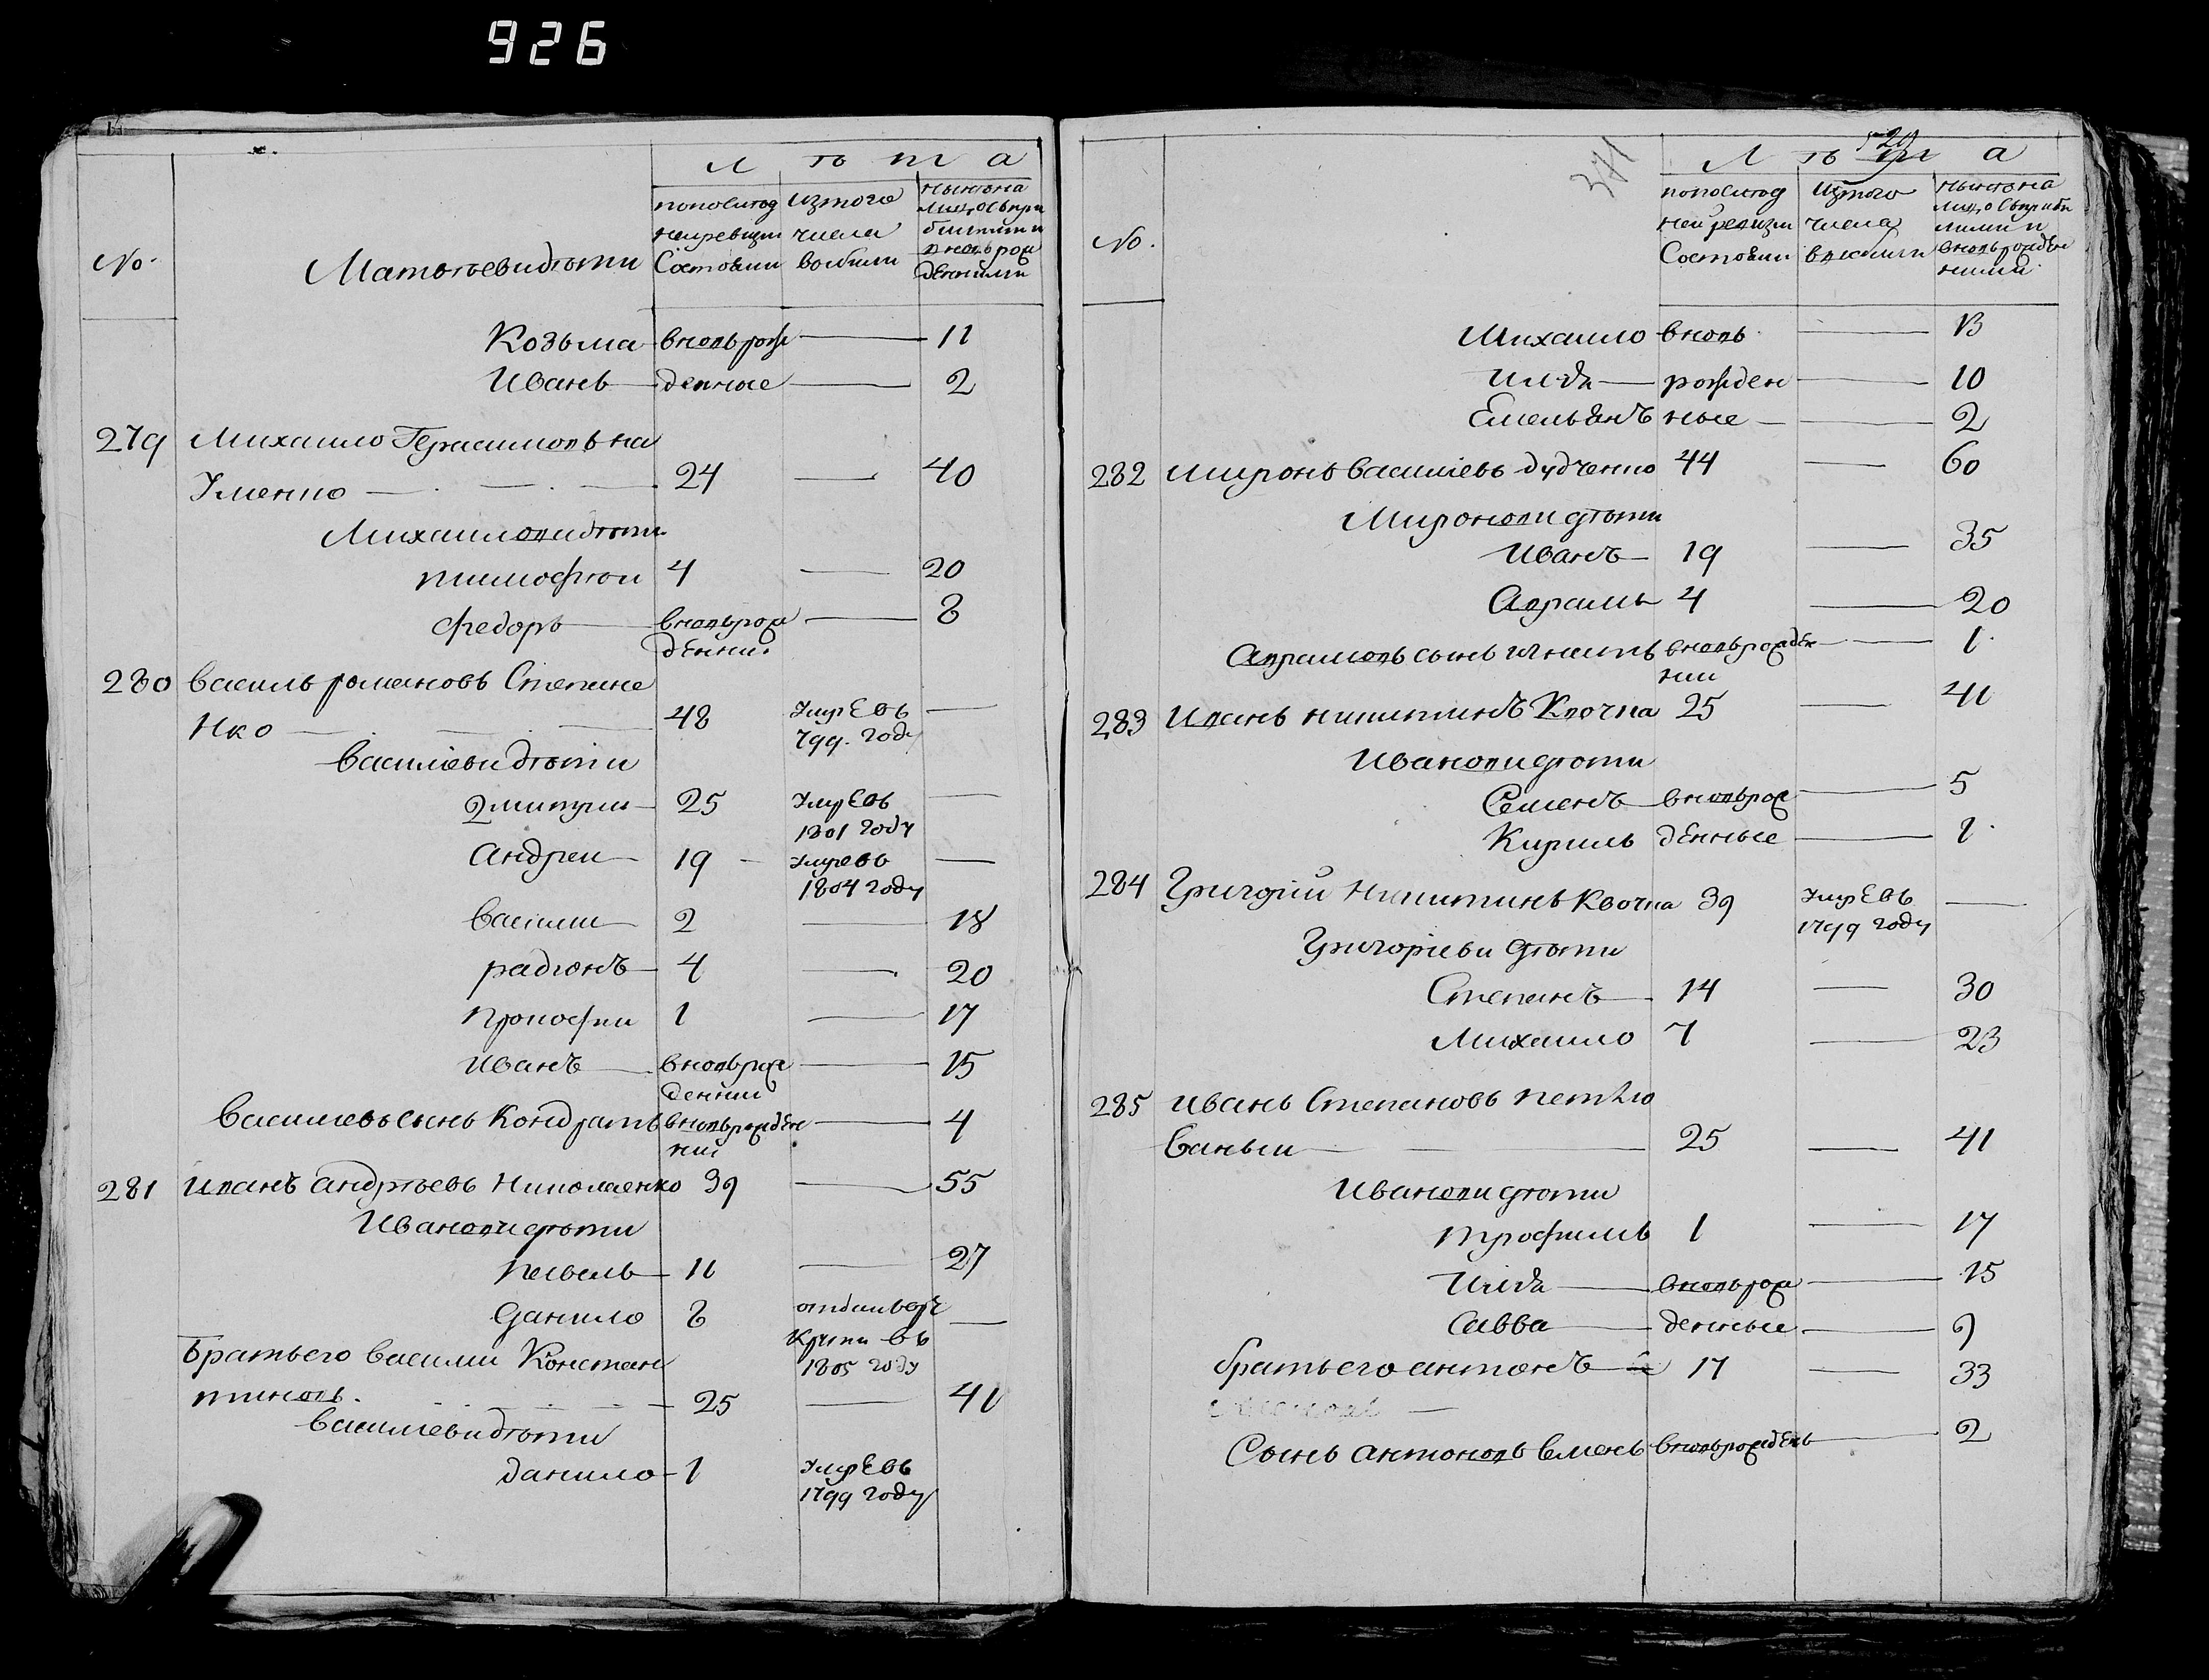 926
Л ѣ т а
No.
Матвѣеви дѣти
попослѣд ней ревизи Состояли
изтого числа выбыли
нынѣ на лицо съ прибылыми и вновь рожденными
Козьма вновь рож — 11
Иванъ — денные — 2
279 Михаило Герасимовъ На
Уменко — 24 — 40
Михаиловы дѣти
тимофѣи 4 — 20
Федоръ — вновь рож — 8
денни
280 василь романовъ Степане
Нко — 48 умре въ —
799. году
Василіеви дѣти
Дмитри — 25 умре въ —
1801 году
Андреи — 19 — умре въ —
1804 году
Василии — 2 — 18
радіонъ — 4 — 20
прокофии 1 — 17
Иванъ — вновь рож — 15
деннии
Василиевъ сынъ Кондратъ вновь рожден — 4
ни
281 Иванъ андрѣевъ Николаенко 39 — 55
Ивановы дѣти
павелъ — 11 — 27
Данило 8 отдан в
рекруты въ —
1805 году
Братъ его Василии Констан
тиновъ. — 25 — 41
Василиеви дѣти
данило — 1 умре въ
1799 году
371
520
Л ѣ т а
No.
попослѣд ней ревизи Состояли
изтого числа выбыли
нынѣ на лицо съ прибылими и вновь рожденними
Михаило вновь — 13
Илія — рожден — 10
Емельянъ ные — 2
282 Миронъ Василіевъ дудченко 44 — 60
Мироновы дѣти
Иванъ — 19 — 35
Аврамъ 4 — 20
Аврамовъ сынъ игнатъ вновь рожден — 1
нии
283 Иванъ никитинъ Квочка 25 — 41
Ивановы дѣти
Семенъ — вновь рож — 5
Кирилъ денные — 1
284 Григорій Никитинъ Квочка 39 умре въ —
1799 году
Григориеви дѣти
Степанъ — 14 — 30
Михаило 7 — 23
285 Иванъ Степановъ
ваный — 25 — 41
Ивановы дѣти
трофимъ 1 — 17
Илія — вновь рож — 15
Савва — денные — 9
братъ его антонъ — 17 — 33
Сынъ антоновъ Семенъ вновь рожденъ — 2